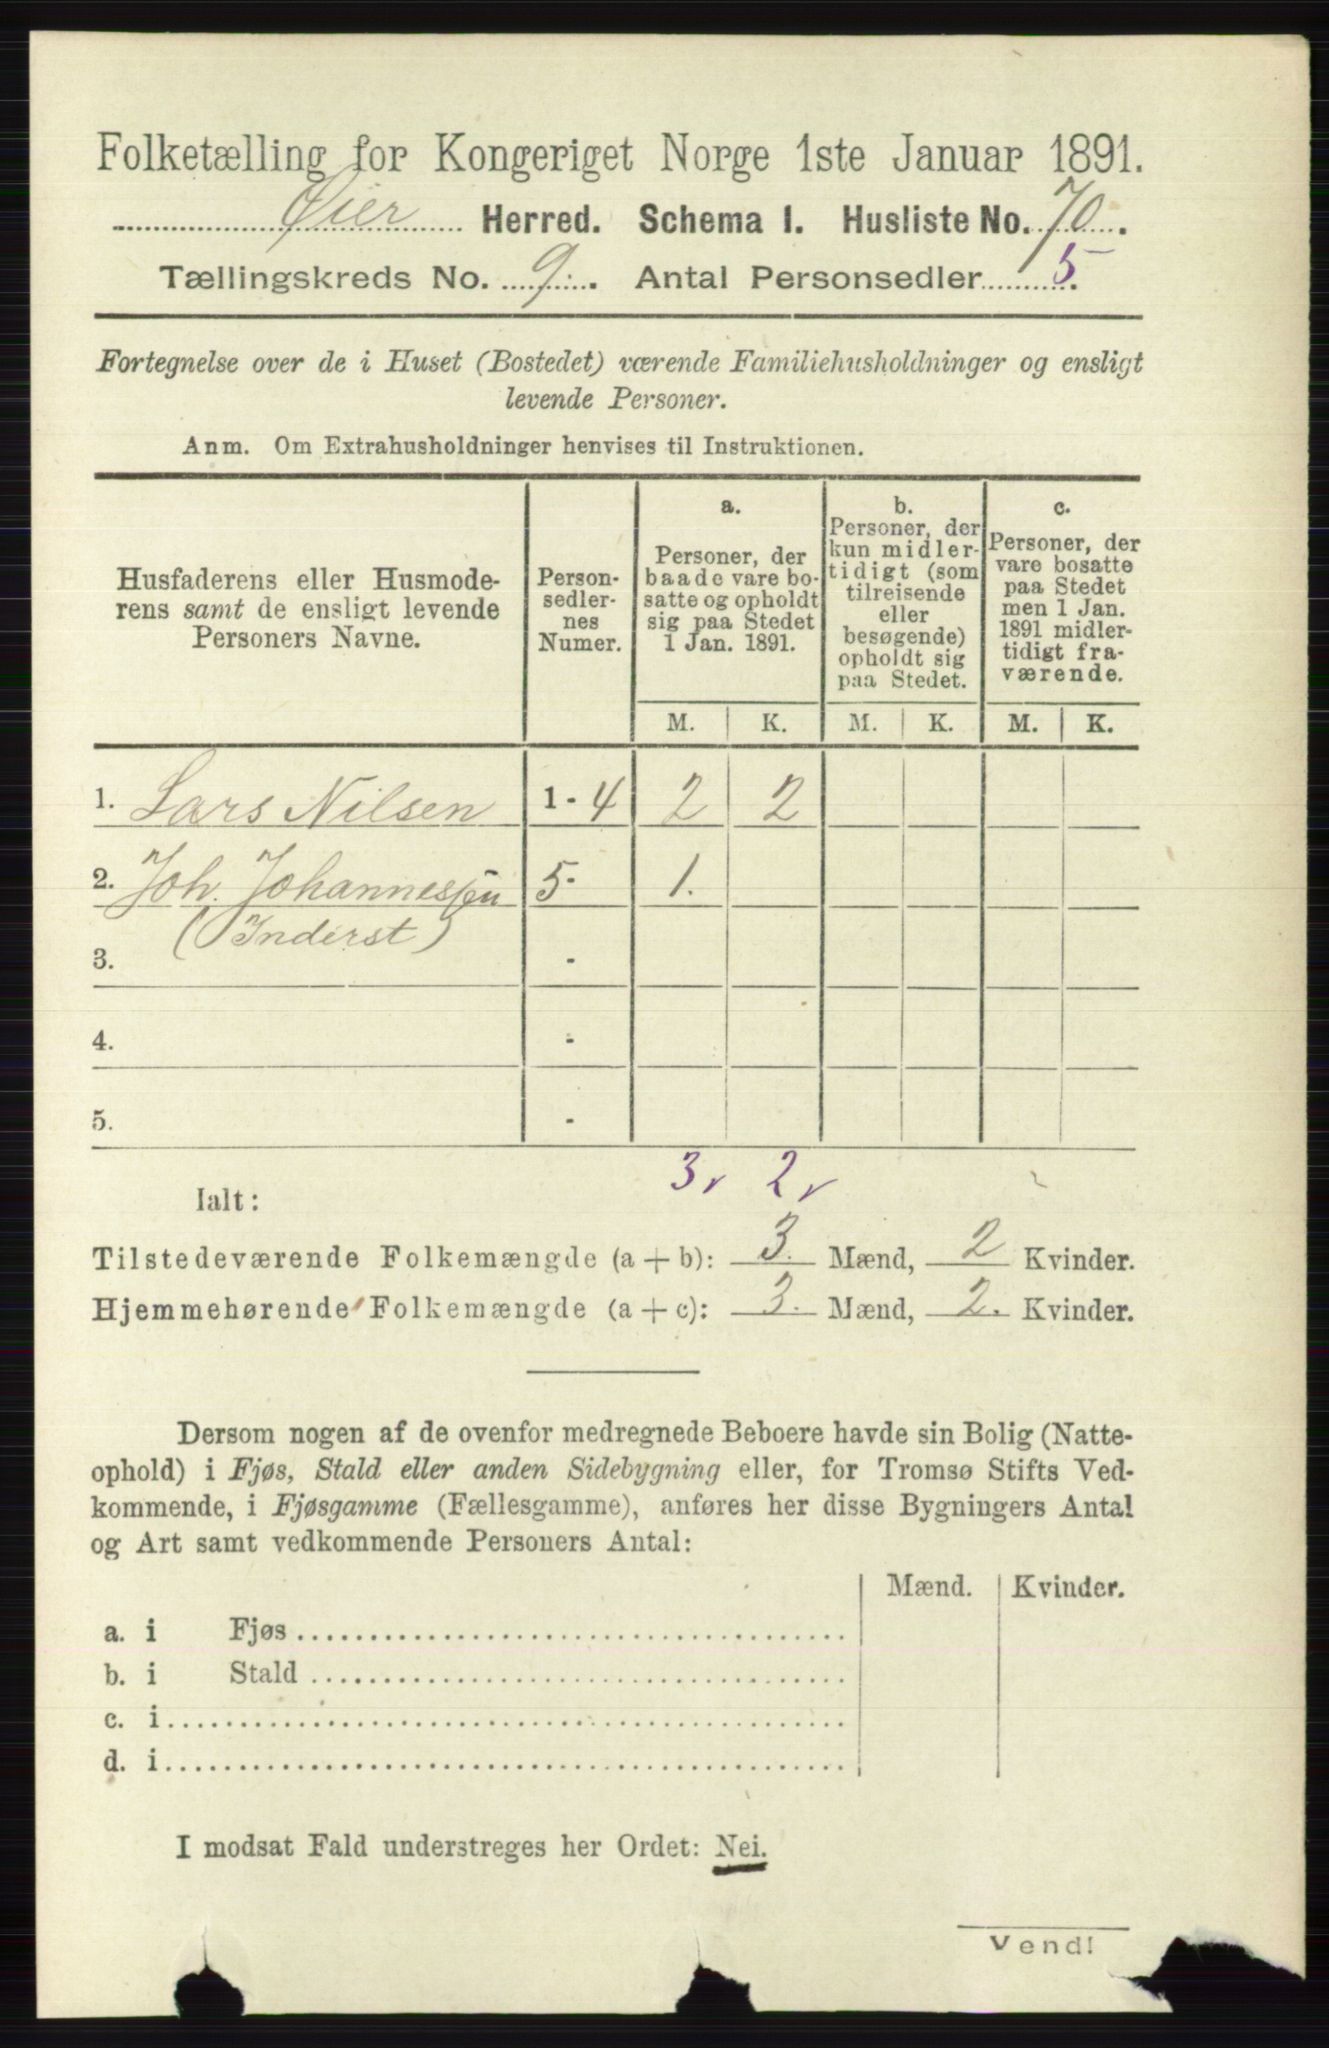 Folketælling for Kongeriget Norge 1ste Januar 1891.
Øier Herred. Schema I. Husliste No. 70.
Tællingskreds No. 9. Antal Personsedler 5.
Fortegnelse over de i Huset (Bostedet) værende Familiehusholdninger og ensligt
levende Personer.
Anm. Om Extrahusholdninger henvises til Instruktionen.
Husfaderens eller Husmode-
rens samt de ensligt levende
Personers Navne.
Person-
sedler-
nes
Numer.
a.
Personer, der
baade vare bo-
satte og opholdt
sig paa Stedet
1 Jan. 1891.
b.
Personer, der
kun midler-
tidigt (som
tilreisende
eller
besøgende)
opholdt sig
paa Stedet.
c.
Personer, der
vare bosatte
paa Stedet
men 1 Jan.
1891 midler-
tidigt fra-
værende.
M. K. M. K. M. K.
1. Lars Nilsen 1 - 4 2 2
2. Joh. Johannessen 5 - 1.
(Inderst)
3. -
4. -
5. -
3 v 2 v
Ialt:
Tilstedeværende Folkemængde (a + b): 3. Mænd, 2 Kvinder.
Hjemmehørende Folkemængde (a + c): 3. Mænd, 2. Kvinder.
Dersom nogen af de ovenfor medregnede Beboere havde sin Bolig (Natte-
ophold) i Fjøs, Stald eller anden Sidebygning eller, for Tromsø Stifts Ved-
kommende, i Fjøsgamme (Fællesgamme), anføres her disse Bygningers Antal
og Art samt vedkommende Personers Antal:
Mænd. Kvinder.
a. i Fjøs
b. i Stald
c. i
d. i
I modsat Fald understreges her Ordet: Nei.
Vend!